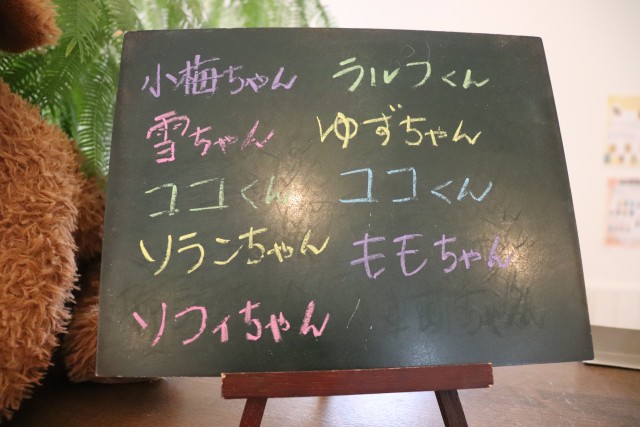 小梅ちゃん
ラルフくん
雪ちゃん
ゆずちゃん
ココくん
ココくん
ソランちゃん
ももちゃん
ソフィちゃん